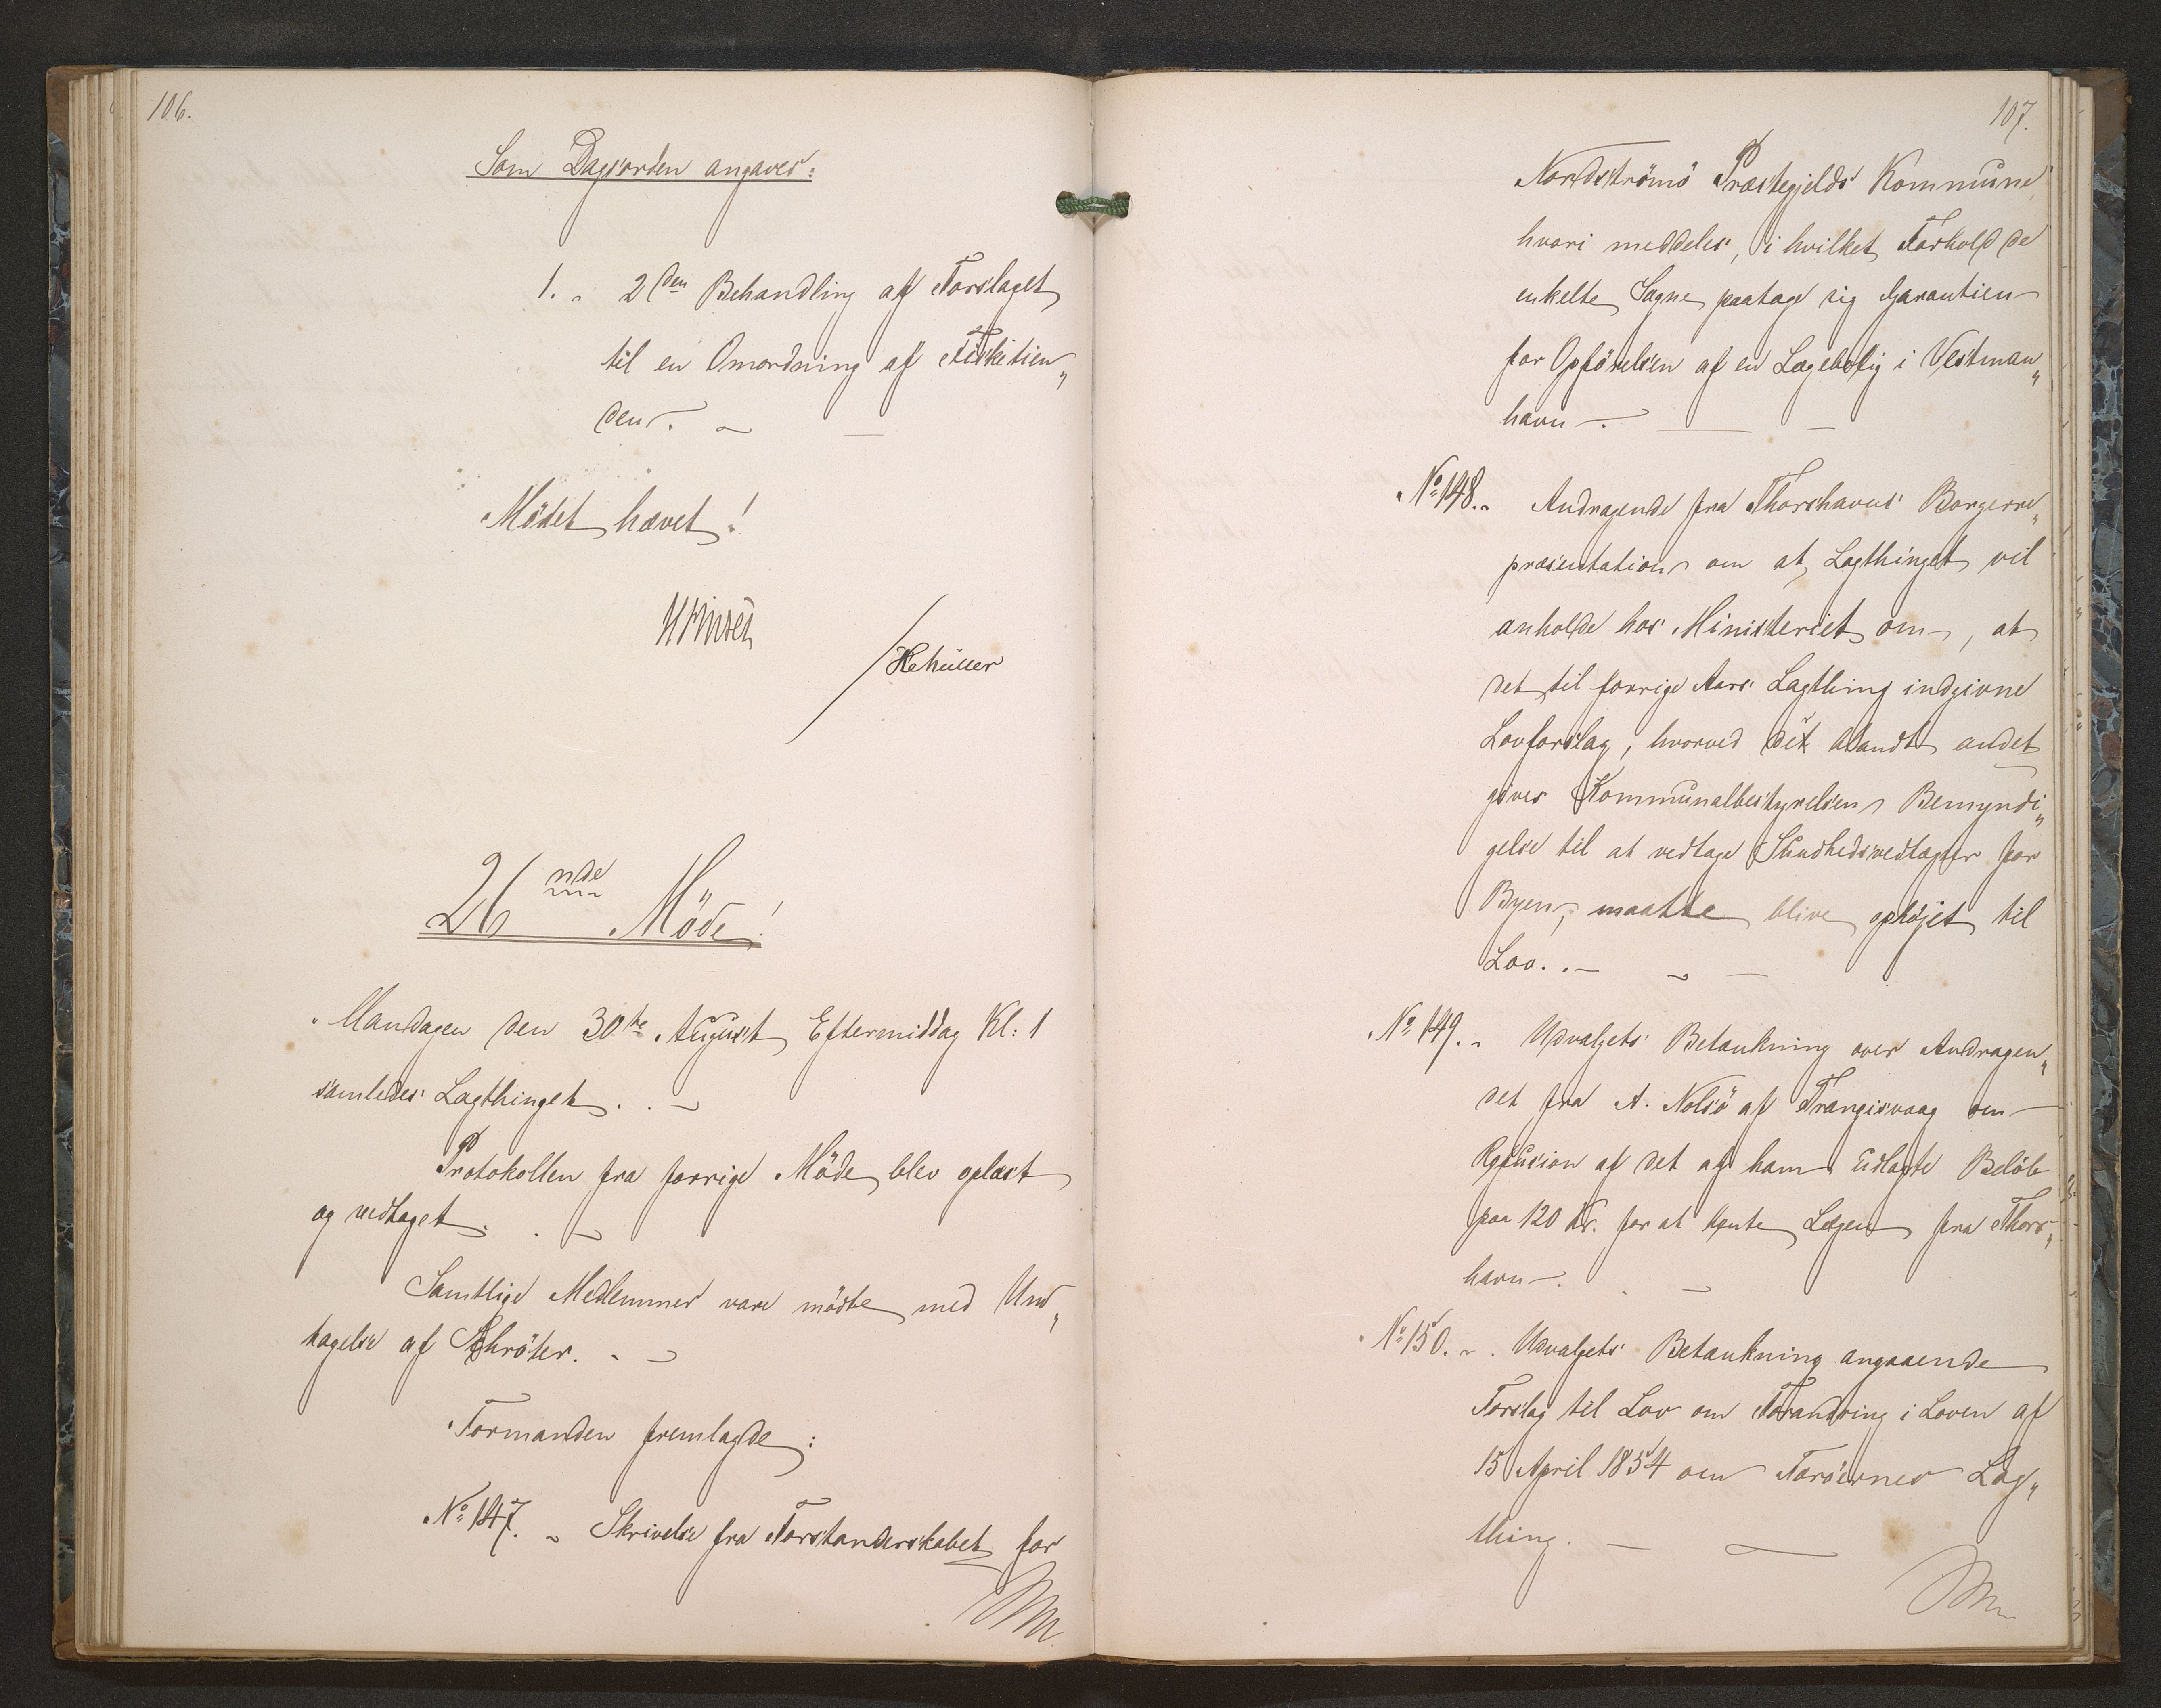 106.
Som Dagsorden angaves:
1. „ 2den Behandling af Forslaget
til en Omordning af Fisketien„
den. –
Mödet hævet!
HMüller
26nde Möde!
Mandagen den 30te August Eftermiddag Kl: 1
samledes Lagthinget. . –
Protokollen fra forrige Möde blev oplæst
og vedtaget. . –
Samtlige Medlemmer vare mödte med Und„
tagelse af Schröter. - –
Formanden fremlagde:
No 147. „ Skrivelse fra Forstanderskabet for
107.
Nordströmö Præstegjelds Kommune,
hvori meddeles, i hvilket Forhold de
enkelte Sogne paatage sig Garantien
for Opförelsen af en Lægebolig i Vestman„
havn –. — –
No 148. „ Andragende fra Thorshavns Borgerre„
præsentation om at Lagthinget vil
anholde hos Ministeriet om, at
det til forrige Aars Lagthing indgivne
Lovforslag, hvorved det blandt andet
gives Kommunalbestyrelsen Bemyndi„
gelse til at vedtage Sundhedsvedtægter for
Byen, maatte blive ophöjet til
Lov. . – – –
No 149. „ Udvalgets Betænkning over Andragen„
det fra A. Nolsö af Trangisvaag om
Refusion af det af ham udlagte Belöb
paa 120 Kr. for at hente Lægen fra Thors„
havn –. . –
No 150. „ . Udvalgets Betænkning angaaende
Forslag til Lov om Forandring i Loven af
15 April 1854 om Færöernes Lag„
thing. – —